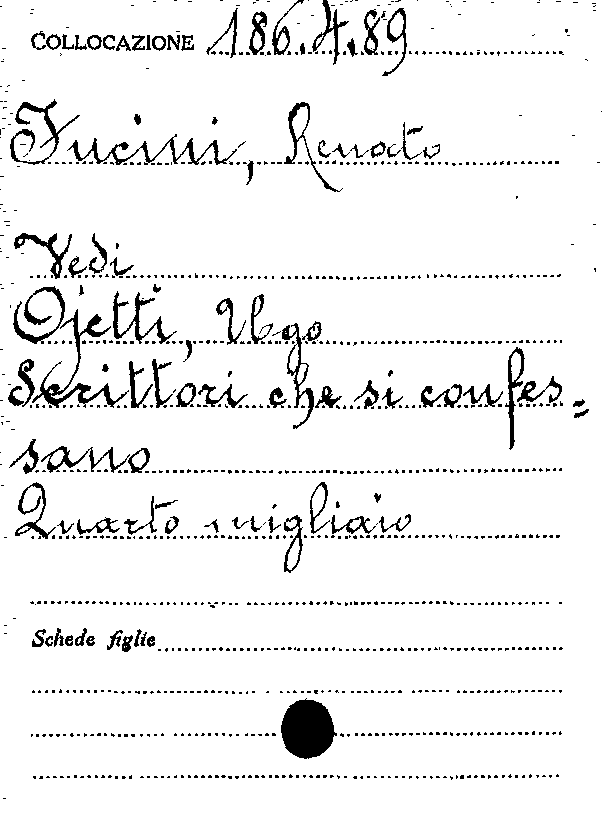 COLLOCAZIONE 186.4.89
Fucini, Renato
Vedi
Ojetti, Ugo
Scrittori che si confes=
sano
Quarto migliaio
Schede figlie